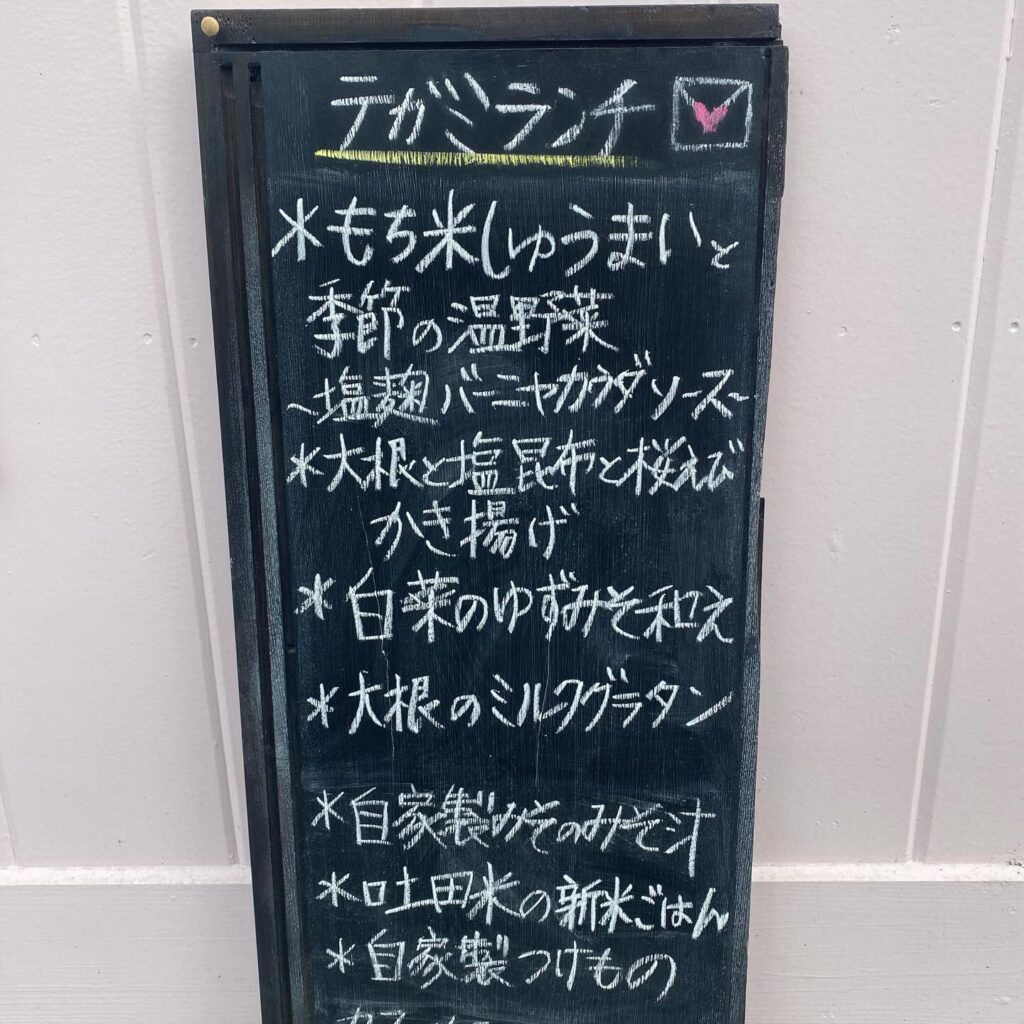 テガミランチ
*もち米しゅうまいと
季節の温野菜
~塩麹バーニャカウダソース~
*大根と塩昆布と桜えび
かき揚げ
*白菜のゆずみそ和え
*大根のミルクグラタン
*自家製みそのみそ汁
*吐田米の新米ごはん
*自家製つけもの